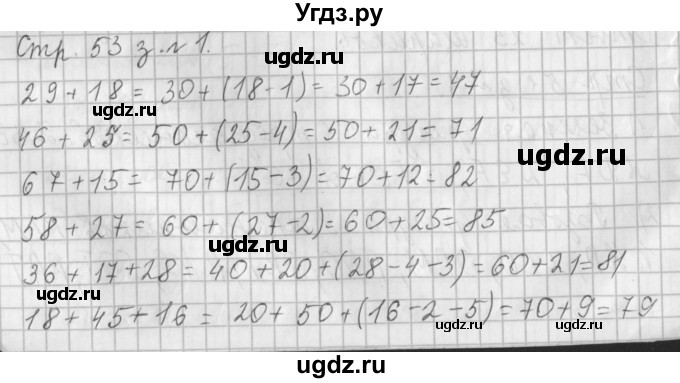 Угдз.ру
Стр. 53 з. № 1.
ugdz.ru
ugdz.ru
29 + 18 = 30 + (18 - 1) = 30 + 17 = 47
ugdz.ru
46 + 25 = 50 + (25 - 4) = 50 + 21 = 71
ugdz.ru
ugdz.ru
67 + 15 = 70 + (15 - 3) = 70 + 12 = 82
58 + 27 = 60 + (27 - 2) = 60 + 25 = 85
ugdz.ru
ugdz.ru
36 + 17 + 28 = 40 + 20 + (28 - 4 - 3) = 60 + 21 = 81
18 + 45 + 16 = 20 + 50 + (16 - 2 - 5) = 70 + 9 = 79
ugdz.ru
ugdz.ru
ugdz.ru